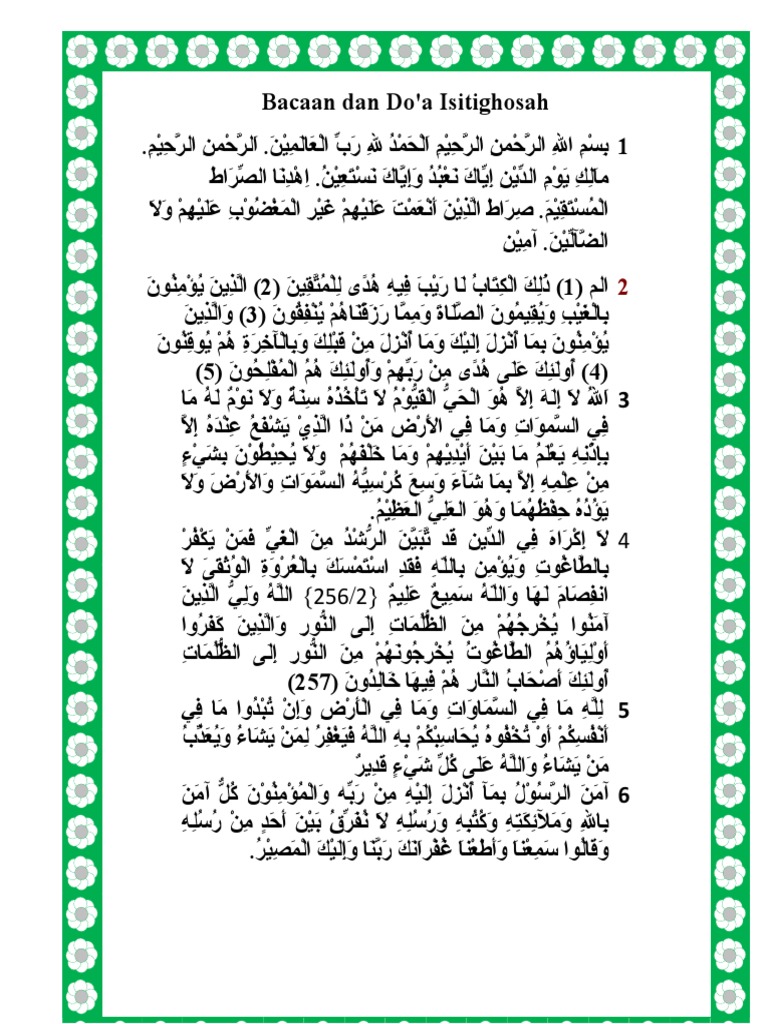 Bacaan dan Do'a Isitighosah
1 بِسْمِ اللهِ الرَّحْمنِ الرَّحِيْمِ اَلْحَمْدُ للهِ رَبِّ الْعَالَمِيْنَ. الرَّحْمنِ الرَّحِيْمِ.
مالِكِ يَوْمِ الدِّيْنِ إِيَّاكَ نَعْبُدُ وَإِيَّاكَ نَسْتَعِيْنُ. اِهْدِنَا الصِّرَاطَ
الْمُسْتَقِيْمَ. صِرَاطَ الَّذِيْنَ أَنْعَمْتَ عَلَيْهِمْ غَيْرِ الْمَغْضُوْبِ عَلَيْهِمْ وَلاَ
الضَّآلِّيْنَ. آمِيْن
2 الم (1) ذَلِكَ الْكِتَابُ لَا رَيْبَ فِيهِ هُدًى لِلْمُتَّقِينَ (2) الَّذِينَ يُؤْمِنُونَ
بِالْغَيْبِ وَيُقِيمُونَ الصَّلَاةَ وَمِمَّا رَزَقْنَاهُمْ يُنْفِقُونَ (3) وَالَّذِينَ
يُؤْمِنُونَ بِمَا أُنْزِلَ إِلَيْكَ وَمَا أُنْزِلَ مِنْ قَبْلِكَ وَبِالْآخِرَةِ هُمْ يُوقِنُونَ
(4) أُولَئِكَ عَلَى هُدًى مِنْ رَبِّهِمْ وَأُولَئِكَ هُمُ الْمُفْلِحُونَ (5)
3 اَللهُ لاَ إِلهَ إِلاَّ هُوَ الْحَيُّ الْقَيُّوْمُ لاَ تَأْخُذُهُ سِنَةٌ وَلاَ نَوْمٌ لَهُ مَا
فِي السَّموَاتِ وَمَا فِي الأَرْضِ مَنْ ذَا الَّذِيْ يَشْفَعُ عِنْدَهُ إِلاَّ
بِإِذْنِهِ يَعْلَمُ مَا بَيْنَ أَيْدِيْهِمْ وَمَا خَلْفَهُمْ وَلاَ يُحِيْطُوْنَ بِشَيْءٍ
مِنْ عِلْمِهِ إِلاَّ بِمَا شَآءَ وَسِعَ كُرْسِيُّهُ السَّمَوَاتِ وَالأَرْضَ وَلاَ
يَؤُدُهُ حِفْظُهُمَا وَهُوَ الْعَلِيُّ الْعَظِيْمُ.
4 لاَ إِكْرَاهَ فِي الدِّينِ قَد تَّبَيَّنَ الرُّشْدُ مِنَ الْغَيِّ فَمَنْ يَكْفُرْ
بِالطَّاغُوتِ وَيُؤْمِن بِاللَّهِ فَقَدِ اسْتَمْسَكَ بِالْعُرْوَةِ الْوُثْقَىَ لاَ
انفِصَامَ لَهَا وَاللَّهُ سَمِيعٌ عَلِيمٌ {256/2} اللَّهُ وَلِيُّ الَّذِينَ
آمَنُوا يُخْرِجُهُمْ مِنَ الظُّلُمَاتِ إِلَى النُّورِ وَالَّذِينَ كَفَرُوا
أَوْلِيَاؤُهُمُ الطَّاغُوتُ يُخْرِجُونَهُمْ مِنَ النُّورِ إِلَى الظُّلُمَاتِ
أُولَئِكَ أَصْحَابُ النَّارِ هُمْ فِيهَا خَالِدُونَ (257)
5 لِلَّهِ مَا فِي السَّمَاوَاتِ وَمَا فِي الْأَرْضِ وَإِنْ تُبْدُوا مَا فِي
أَنْفُسِكُمْ أَوْ تُخْفُوهُ يُحَاسِبْكُمْ بِهِ اللَّهُ فَيَغْفِرُ لِمَنْ يَشَاءُ وَيُعَذِّبُ
مَنْ يَشَاءُ وَاللَّهُ عَلَى كُلِّ شَيْءٍ قَدِيرٌ
6 آمَنَ الرَّسُوْلُ بِمَآ أُنْزِلَ إِلَيْهِ مِنْ رَبِّه وَالْمُؤْمِنُوْنَ كُلٌّ آمَنَ
بِاللهِ وَمَلآئِكَتِهِ وَكُتُبِهِ وَرُسُلِهِ لاَ نُفَرِّقُ بَيْنَ أَحَدٍ مِنْ رُسُلِهِ
وَقَالُوا سَمِعْنَا وَأَطَعْنَا غُفْرَانَكَ رَبَّنَا وَإِلَيْكَ الْمَصِيْرُ.